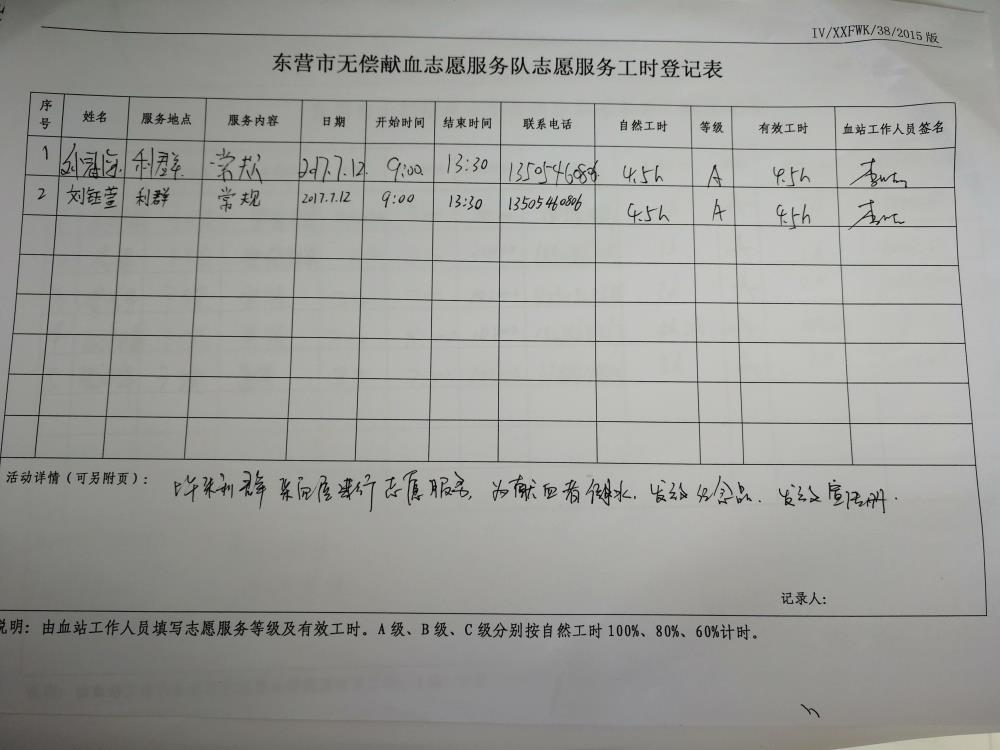 IV/XXFWK/38/2015版
东营市无偿献血志愿服务队志愿服务工时登记表
序号 姓名 服务地点 服务内容 日期 开始时间 结束时间 联系电话 自然工时 等级 有效工时 血站工作人员签名
1 利群 常规 2017.7.12 9:00 13:30 13505460806 4.5h A 4.5h
2 刘钰萱 利群 常规 2017.7.12 9:00 13:30 13505460806 4.5h A 4.5h
活动详情（可另附页）： 利群 进行志愿服务，为献血者倒水，发放纪念品，发放宣传册.
记录人：
说明：由血站工作人员填写志愿服务等级及有效工时。A级、B级、C级分别按自然工时100%、80%、60%计时。